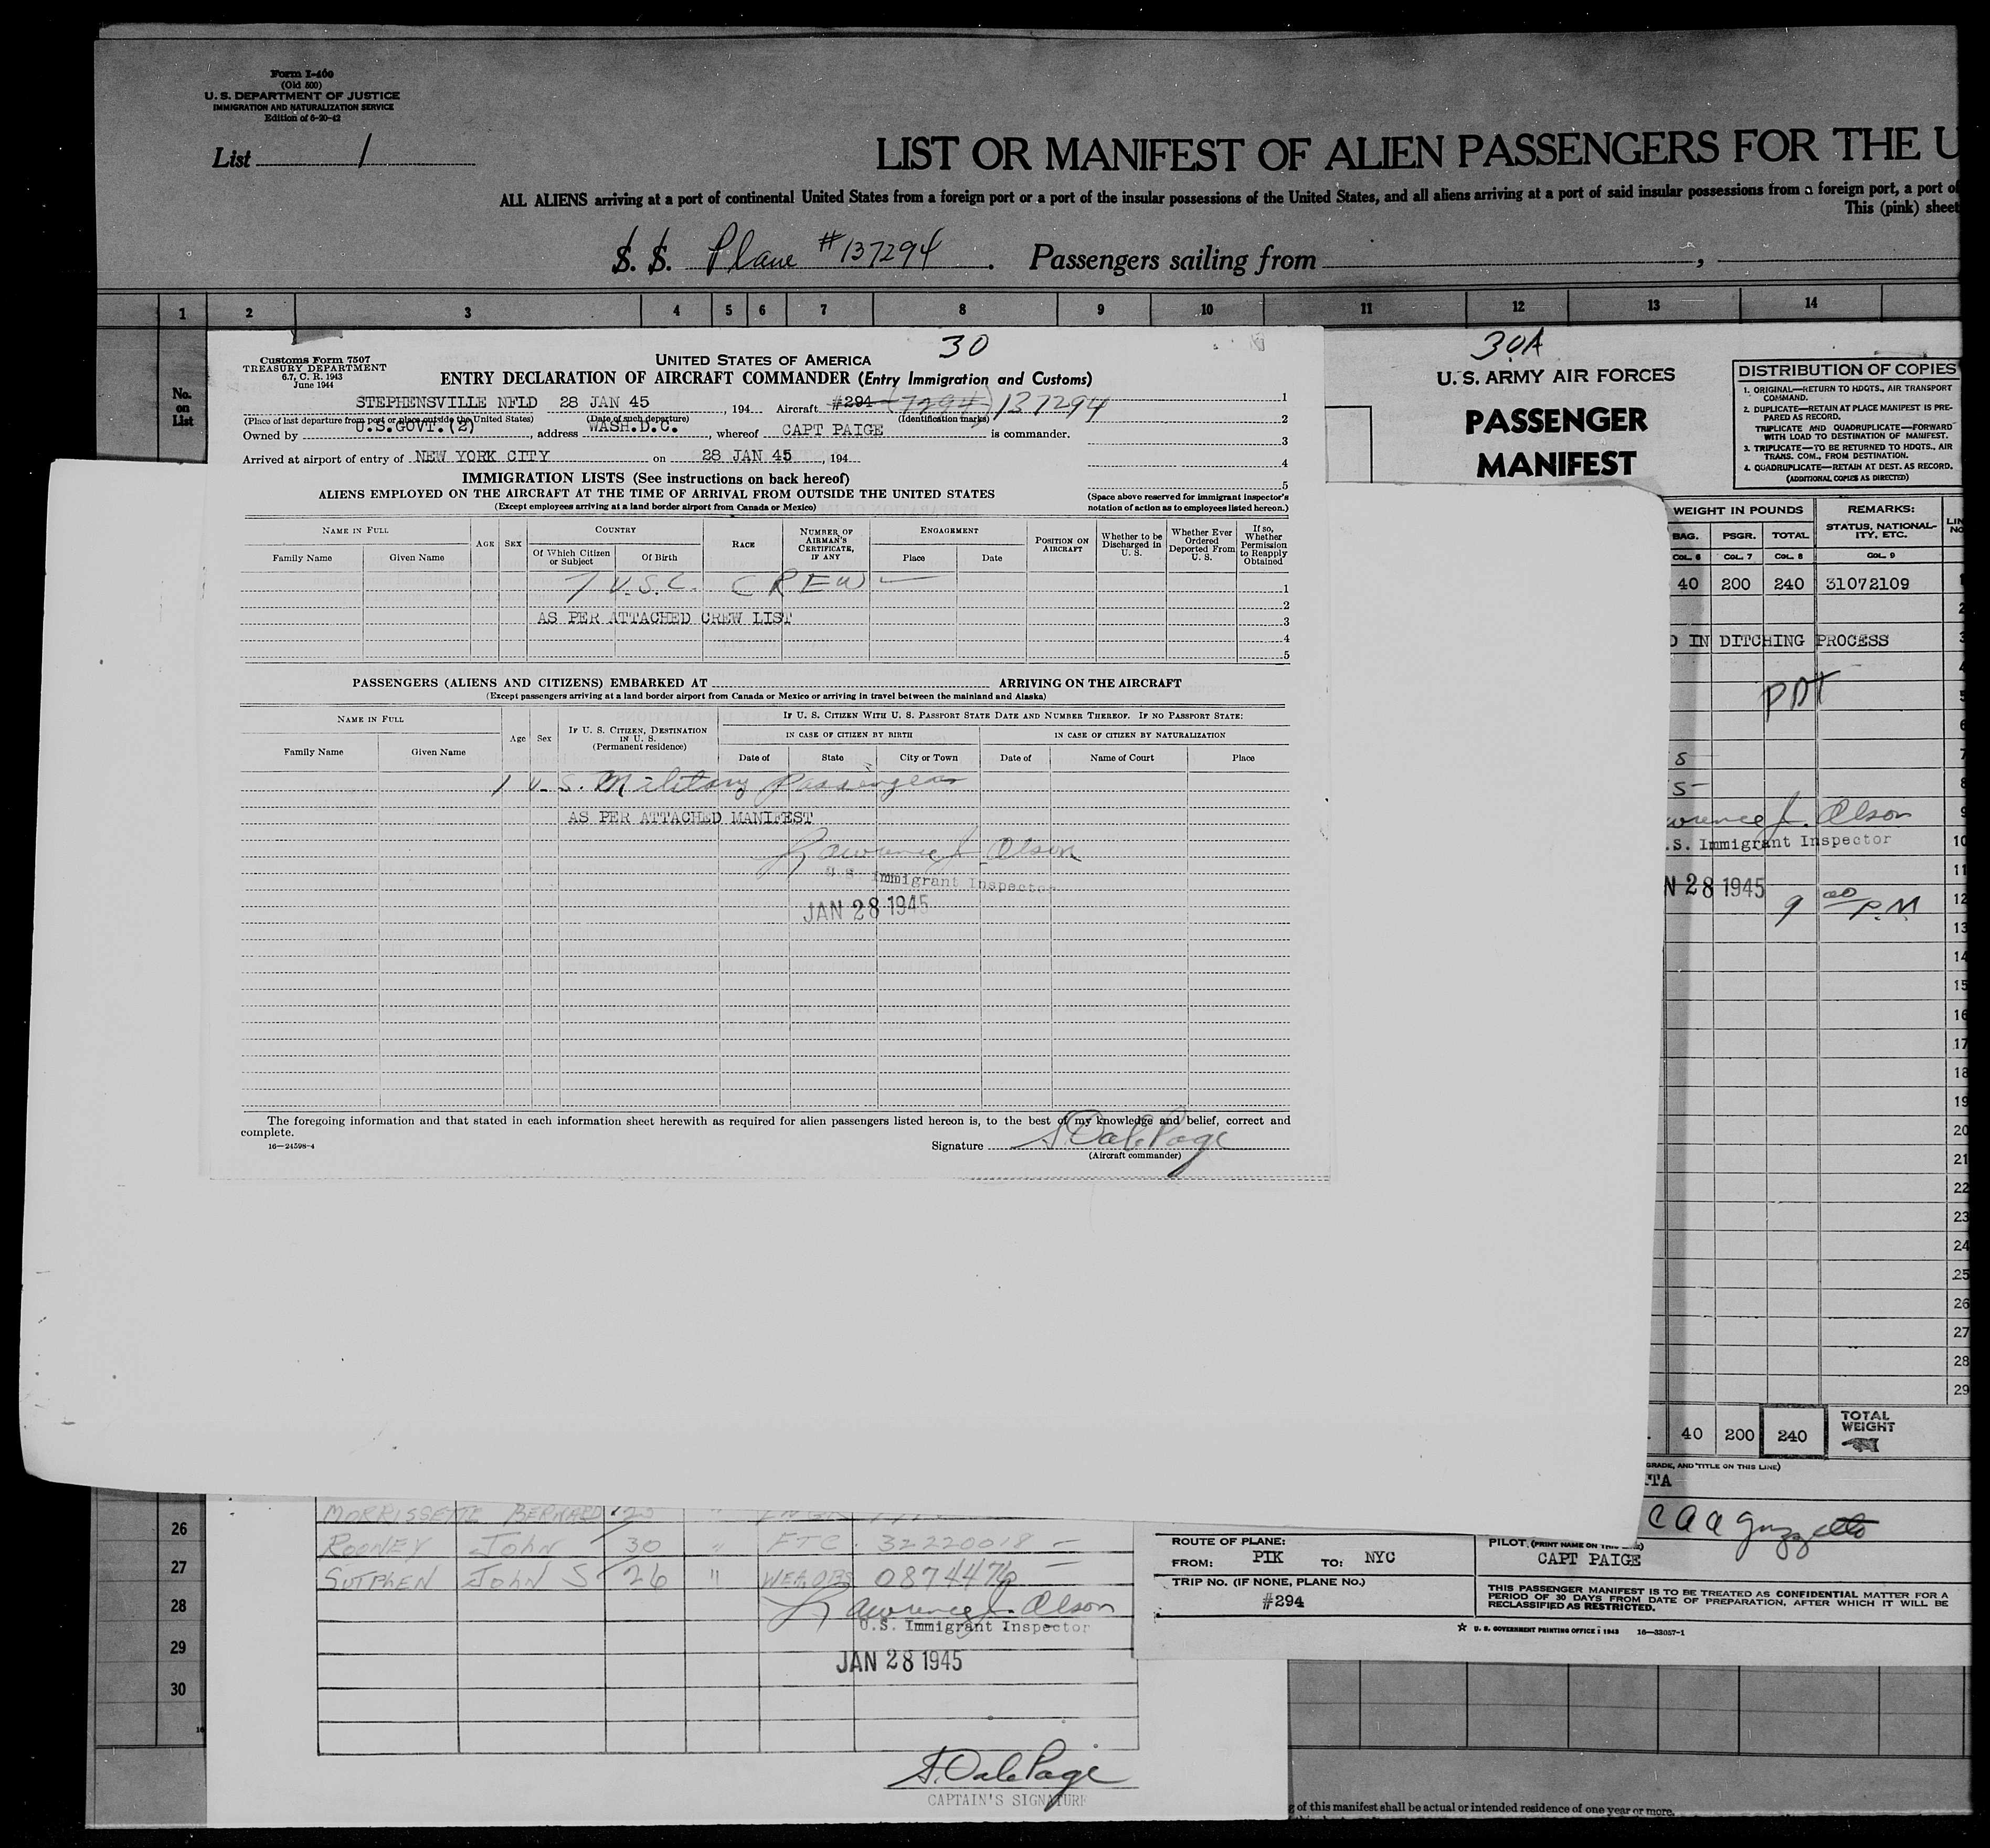 Form I-460
(Old 500)
U. S. DEPARTMENT OF JUSTICE
IMMIGRATION AND NATURALIZATION SERVICE
Edition of 6-20-42
List 1
LIST OR MANIFEST OF ALIEN PASSENGERS FOR THE U
ALL ALIENS arriving at a port of continental United States from a foreign port or a port of the insular possessions of the United States, and all aliens arriving at a port of said insular possessions from a foreign port, a port of
This (pink) sheet
S. S. Plane #137294. Passengers sailing from ,
1 2 3 4 5 6 7 8 9 10 11 12 13 14
No. on List
30
Customs Form 7507
TREASURY DEPARTMENT
6.7, C. R. 1943
June 1944
UNITED STATES OF AMERICA
ENTRY DECLARATION OF AIRCRAFT COMMANDER (Entry Immigration and Customs)
STEPHENSVILLE NFLD 28 JAN 45, 194 Aircraft #294 (7294) 137294
(Place of last departure from port or place outside the United States) (Date of such departure) (Identification marks)
Owned by U.S.GOVT.(2), address WASH.D.C., whereof CAPT PAIGE is commander.
Arrived at airport of entry of NEW YORK CITY on 28 JAN 45, 194
1
2
3
4
5
IMMIGRATION LISTS (See instructions on back hereof)
ALIENS EMPLOYED ON THE AIRCRAFT AT THE TIME OF ARRIVAL FROM OUTSIDE THE UNITED STATES
(Except employees arriving at a land border airport from Canada or Mexico)
(Space above reserved for immigrant inspector's
notation of action as to employees listed hereon.)
NAME IN FULL AGE SEX COUNTRY RACE NUMBER OF AIRMAN'S CERTIFICATE, IF ANY ENGAGEMENT POSITION ON AIRCRAFT Whether to be Discharged in U. S. Whether Ever Ordered Deported From U. S. If so, Whether Permission to Reapply Obtained
Family Name Given Name Of Which Citizen or Subject Of Birth Place Date
7 U.S.C. CREW — 1
2
AS PER ATTACHED CREW LIST 3
4
5
PASSENGERS (ALIENS AND CITIZENS) EMBARKED AT ARRIVING ON THE AIRCRAFT
(Except passengers arriving at a land border airport from Canada or Mexico or arriving in travel between the mainland and Alaska)
NAME IN FULL Age Sex IF U. S. CITIZEN, DESTINATION IN U. S. (Permanent residence) IF U. S. CITIZEN WITH U. S. PASSPORT STATE DATE AND NUMBER THEREOF. IF NO PASSPORT STATE:
IN CASE OF CITIZEN BY BIRTH IN CASE OF CITIZEN BY NATURALIZATION
Family Name Given Name Date of State City or Town Date of Name of Court Place
1 U. S. Military Passenger
AS PER ATTACHED MANIFEST
Lawrence J. Olson
U.S. Immigrant Inspector
JAN 28 1945
The foregoing information and that stated in each information sheet herewith as required for alien passengers listed hereon is, to the best of my knowledge and belief, correct and
complete.
16—24598-4
Signature S. Dale Page
(Aircraft commander)
30A
U. S. ARMY AIR FORCES
PASSENGER
MANIFEST
DISTRIBUTION OF COPIES
1. ORIGINAL—RETURN TO HDQTS., AIR TRANSPORT COMMAND.
2. DUPLICATE—RETAIN AT PLACE MANIFEST IS PREPARED AS RECORD.
TRIPLICATE AND QUADRUPLICATE—FORWARD WITH LOAD TO DESTINATION OF MANIFEST.
3. TRIPLICATE—TO BE RETURNED TO HDQTS., AIR TRANS. COM., FROM DESTINATION.
4. QUADRUPLICATE—RETAIN AT DEST. AS RECORD.
(ADDITIONAL COPIES AS DIRECTED)
WEIGHT IN POUNDS REMARKS: STATUS, NATIONALITY, ETC. LIN NO
BAG. PSGR. TOTAL
COL. 6 COL. 7 COL. 8 COL. 9
40 200 240 31072109 1
2
D IN DITCHING PROCESS 3
4
PDT 5
6
7
8
9
wrence J. Olson
.S. Immigrant Inspector 10
11
N 28 1945 9 00 P.M 12
13
14
15
16
17
18
19
20
21
22
23
24
25
26
27
28
29
40 200 240 TOTAL WEIGHT
GRADE, AND TITLE ON THIS LINE)
TTA
26
27
28
29
30
MORRISSETTE BERNARD
ROONEY John 30 " FTC. 32220018 —
SUTPHEN John S 26 " WEA.OBS 0874476
Lawrence J. Olson
U.S. Immigrant Inspector
JAN 28 1945
S. Dale Page
CAPTAIN'S SIGNATURE
ROUTE OF PLANE:
FROM: PIK TO: NYC
TRIP NO. (IF NONE, PLANE NO.)
#294
PILOT (PRINT NAME ON THIS LINE)
CAPT PAIGE
THIS PASSENGER MANIFEST IS TO BE TREATED AS CONFIDENTIAL MATTER FOR A
PERIOD OF 30 DAYS FROM DATE OF PREPARATION, AFTER WHICH IT WILL BE
RECLASSIFIED AS RESTRICTED.
☆ U. S. GOVERNMENT PRINTING OFFICE : 1943 16—33057-1
g of this manifest shall be actual or intended residence of one year or more.